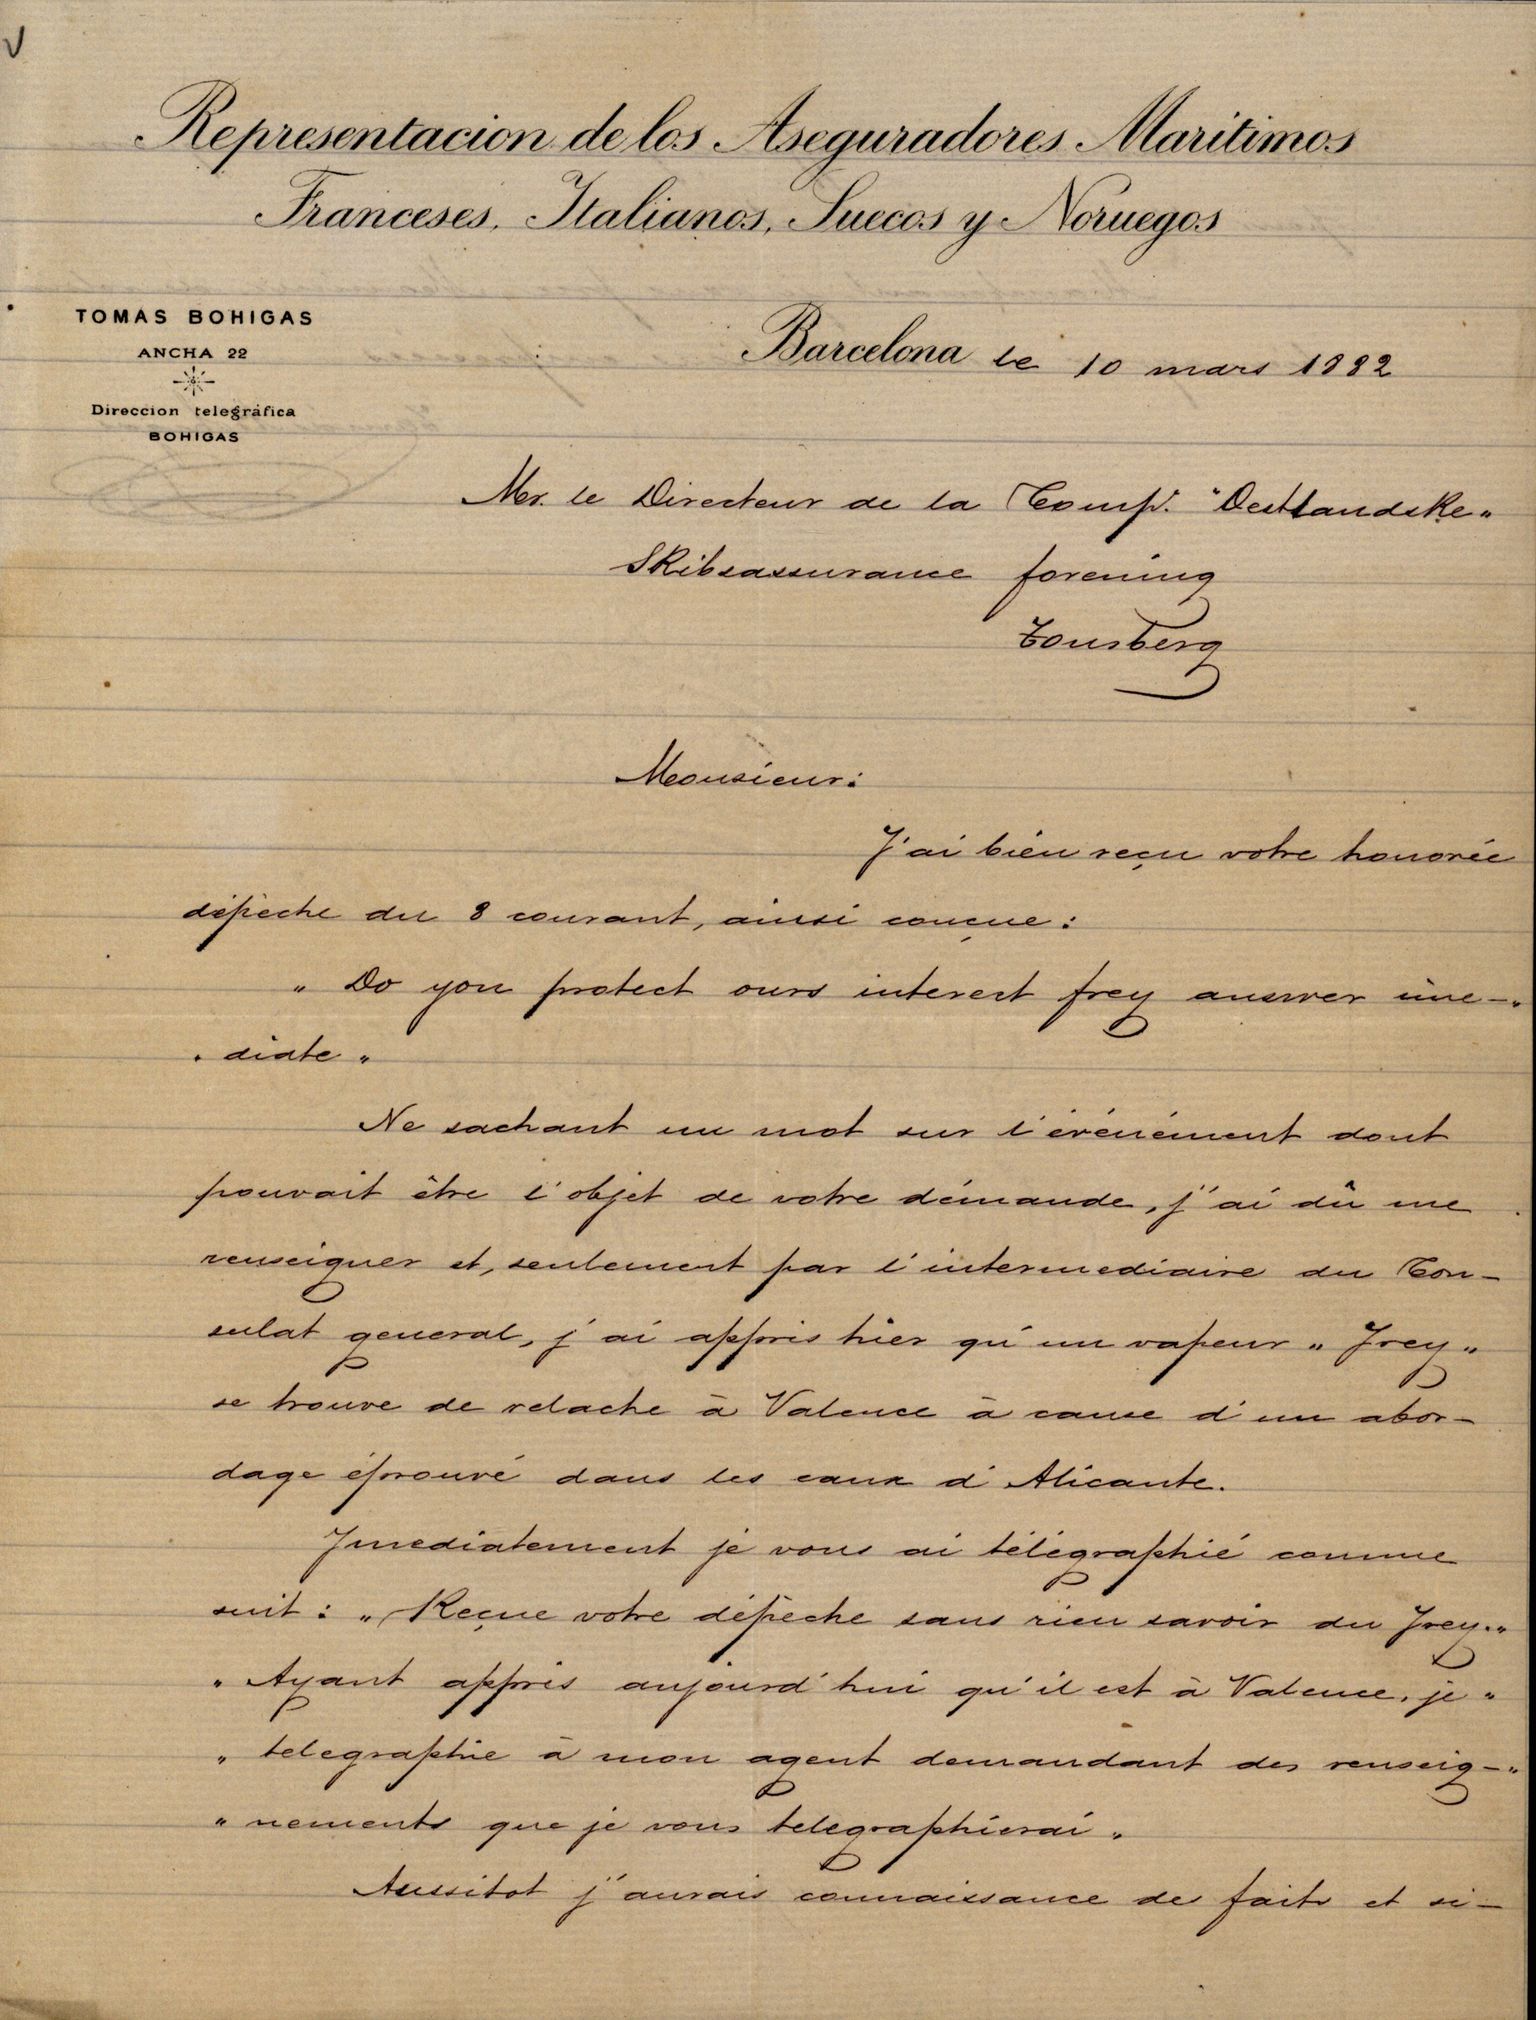 Representacion de los Aseguradores Maritimos
Franceses, Italianos, Suecos y Noruegos
TOMAS BOHIGAS
ANCHA 22
Direccion telegráfica
BOHIGAS
Barcelona le 10 mars 1882
Mr. le Directeur de la Comp. "Oestlandske"
Skibsassurance forening
Tonsberg
Monsieur:
J'ai bien reçu votre honorée
dépèche du 8 courant, ainsi conçue:
" Do you protect ours interest frey answer ime-"
" diate "
Ne sachant un mot sur l'événément dont
pouvait être l'objet de votre démande, j'ai dû me
renseigner et, seulement par l'intermediaire du Con-
sulat general, j'ai appris hier qu'un vapeur " Frey "
se trouve de relache à Valence à cause d'un abor-
dage éprouvé dans les eaux d'Alicante.
Imediatement je vous ai télégraphié comme
suit: " Reçue votre dépèche sans rien savoir du Frey."
" Ayant appris aujourd'hui qu'il est à Valence, je "
" telegraphie à mon agent demandant des renseig-"
" nements que je vous telegraphierai "
Aussitot j'aurais connaissance des faits et si-